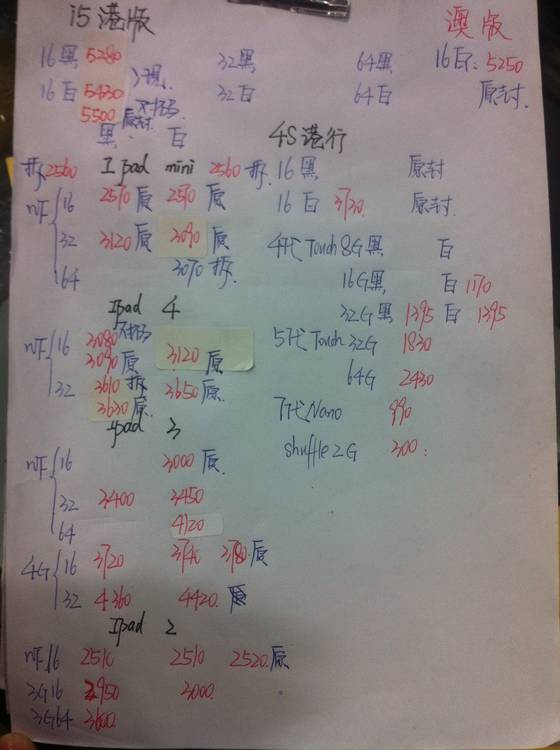 i5港版 澳版
16黑 5280 32黑 64黑 16白: 5250
16白 5430 32白 64白 原封.
5500 原封.
黑 白 4S港行
拆2560 Ipad mini 2560 拆. 16黑 原封
16 2510 原 2510 原. 16白 3730. 原封.
32 3120 原 3090 原 4代Touch 8G黑 白
64 3070 拆. 16G黑 白 1170
Ipad 4 32G黑 1395 白 1395
16 3080 不扫码 5代Touch 32G 1830
3090 原 3120 原. 64G 2430
32 3610 拆 3650 原. 7代Nano 990
3630 原. shuffle 2G 300.
Ipad 3
16 3000 原.
32 3400 3450
64 4120
4G 16 3720 3780. 原
32 4360 4420. 原
Ipad 2
16 2510 2510 2520. 原
3G16 2950 3000.
3G64 3600.